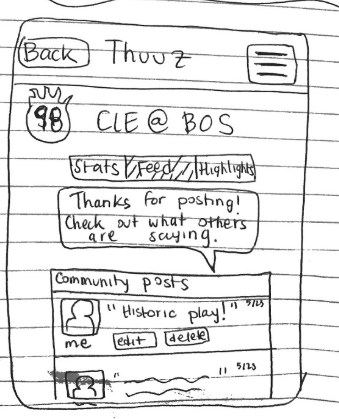 Back Thuuz
98 CLE @ BOS
Stats Feed Highlights
Thanks for posting!
Check out what others
are saying.
Community posts
"Historic play!" 5/23
me edit delete
" " 5/23